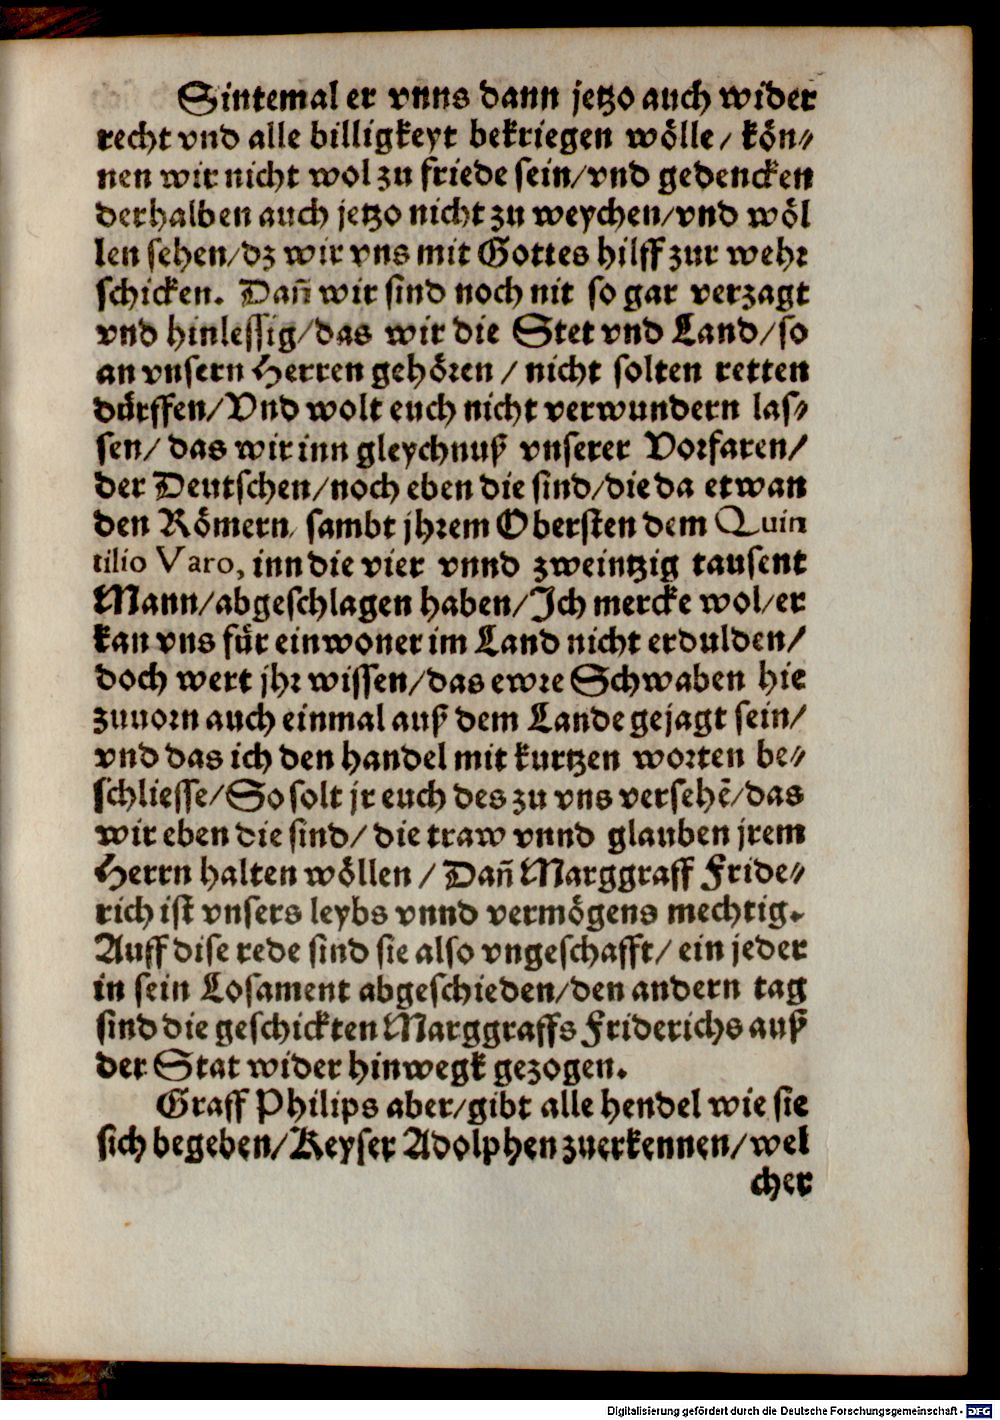 Sintemal er vnns dann jetzo auch wider
recht vnd alle billigkeyt bekriegen wölle/ kön⸗
nen wir nicht wol zu friede sein/vnd gedencken
derhalben auch jetzo nicht zu weychen/vnd wöl
len sehen/dz wir vns mit Gottes hilff zur wehr
schicken. Dañ wir sind noch nit so gar verzagt
vnd hinlessig/das wir die Stet vnd Land/so
an vnsern Herren gehören / nicht solten retten
dörffen/Vnd wolt euch nicht verwundern las⸗
sen/ das wir inn gleychnuß vnserer Vorfaren/
der Deutschen/noch eben die sind/die da etwan
den Römern/ sambt jhrem Obersten dem Quin
tilio Varo, inn die vier vnnd zweintzig tausent
Mann/abgeschlagen haben/Ich mercke wol/er
kan vns für einwoner im Land nicht erdulden/
doch wert jhr wissen/das ewre Schwaben hie
zuuorn auch einmal auß dem Lande gejagt sein/
vnd das ich den handel mit kurtzen worten be⸗
schliesse/So solt jr euch des zu vns versehẽ/das
wir eben die sind/ die traw vnnd glauben jrem
Herrn halten wöllen / Dañ Marggraff Fride⸗
rich ist vnsers leybs vnnd vermögens mechtig.
Auff dise rede sind sie also vngeschafft/ ein jeder
in sein Losament abgeschieden/den andern tag
sind die geschickten Marggraffs Friderichs auß
der Stat wider hinwegk gezogen.
Graff Philips aber/gibt alle hendel wie sie
sich begeben/Keyser Adolphen zuerkennen/wel
cher
Digitalisierung gefördert durch die Deutsche Forschungsgemeinschaft - DFG